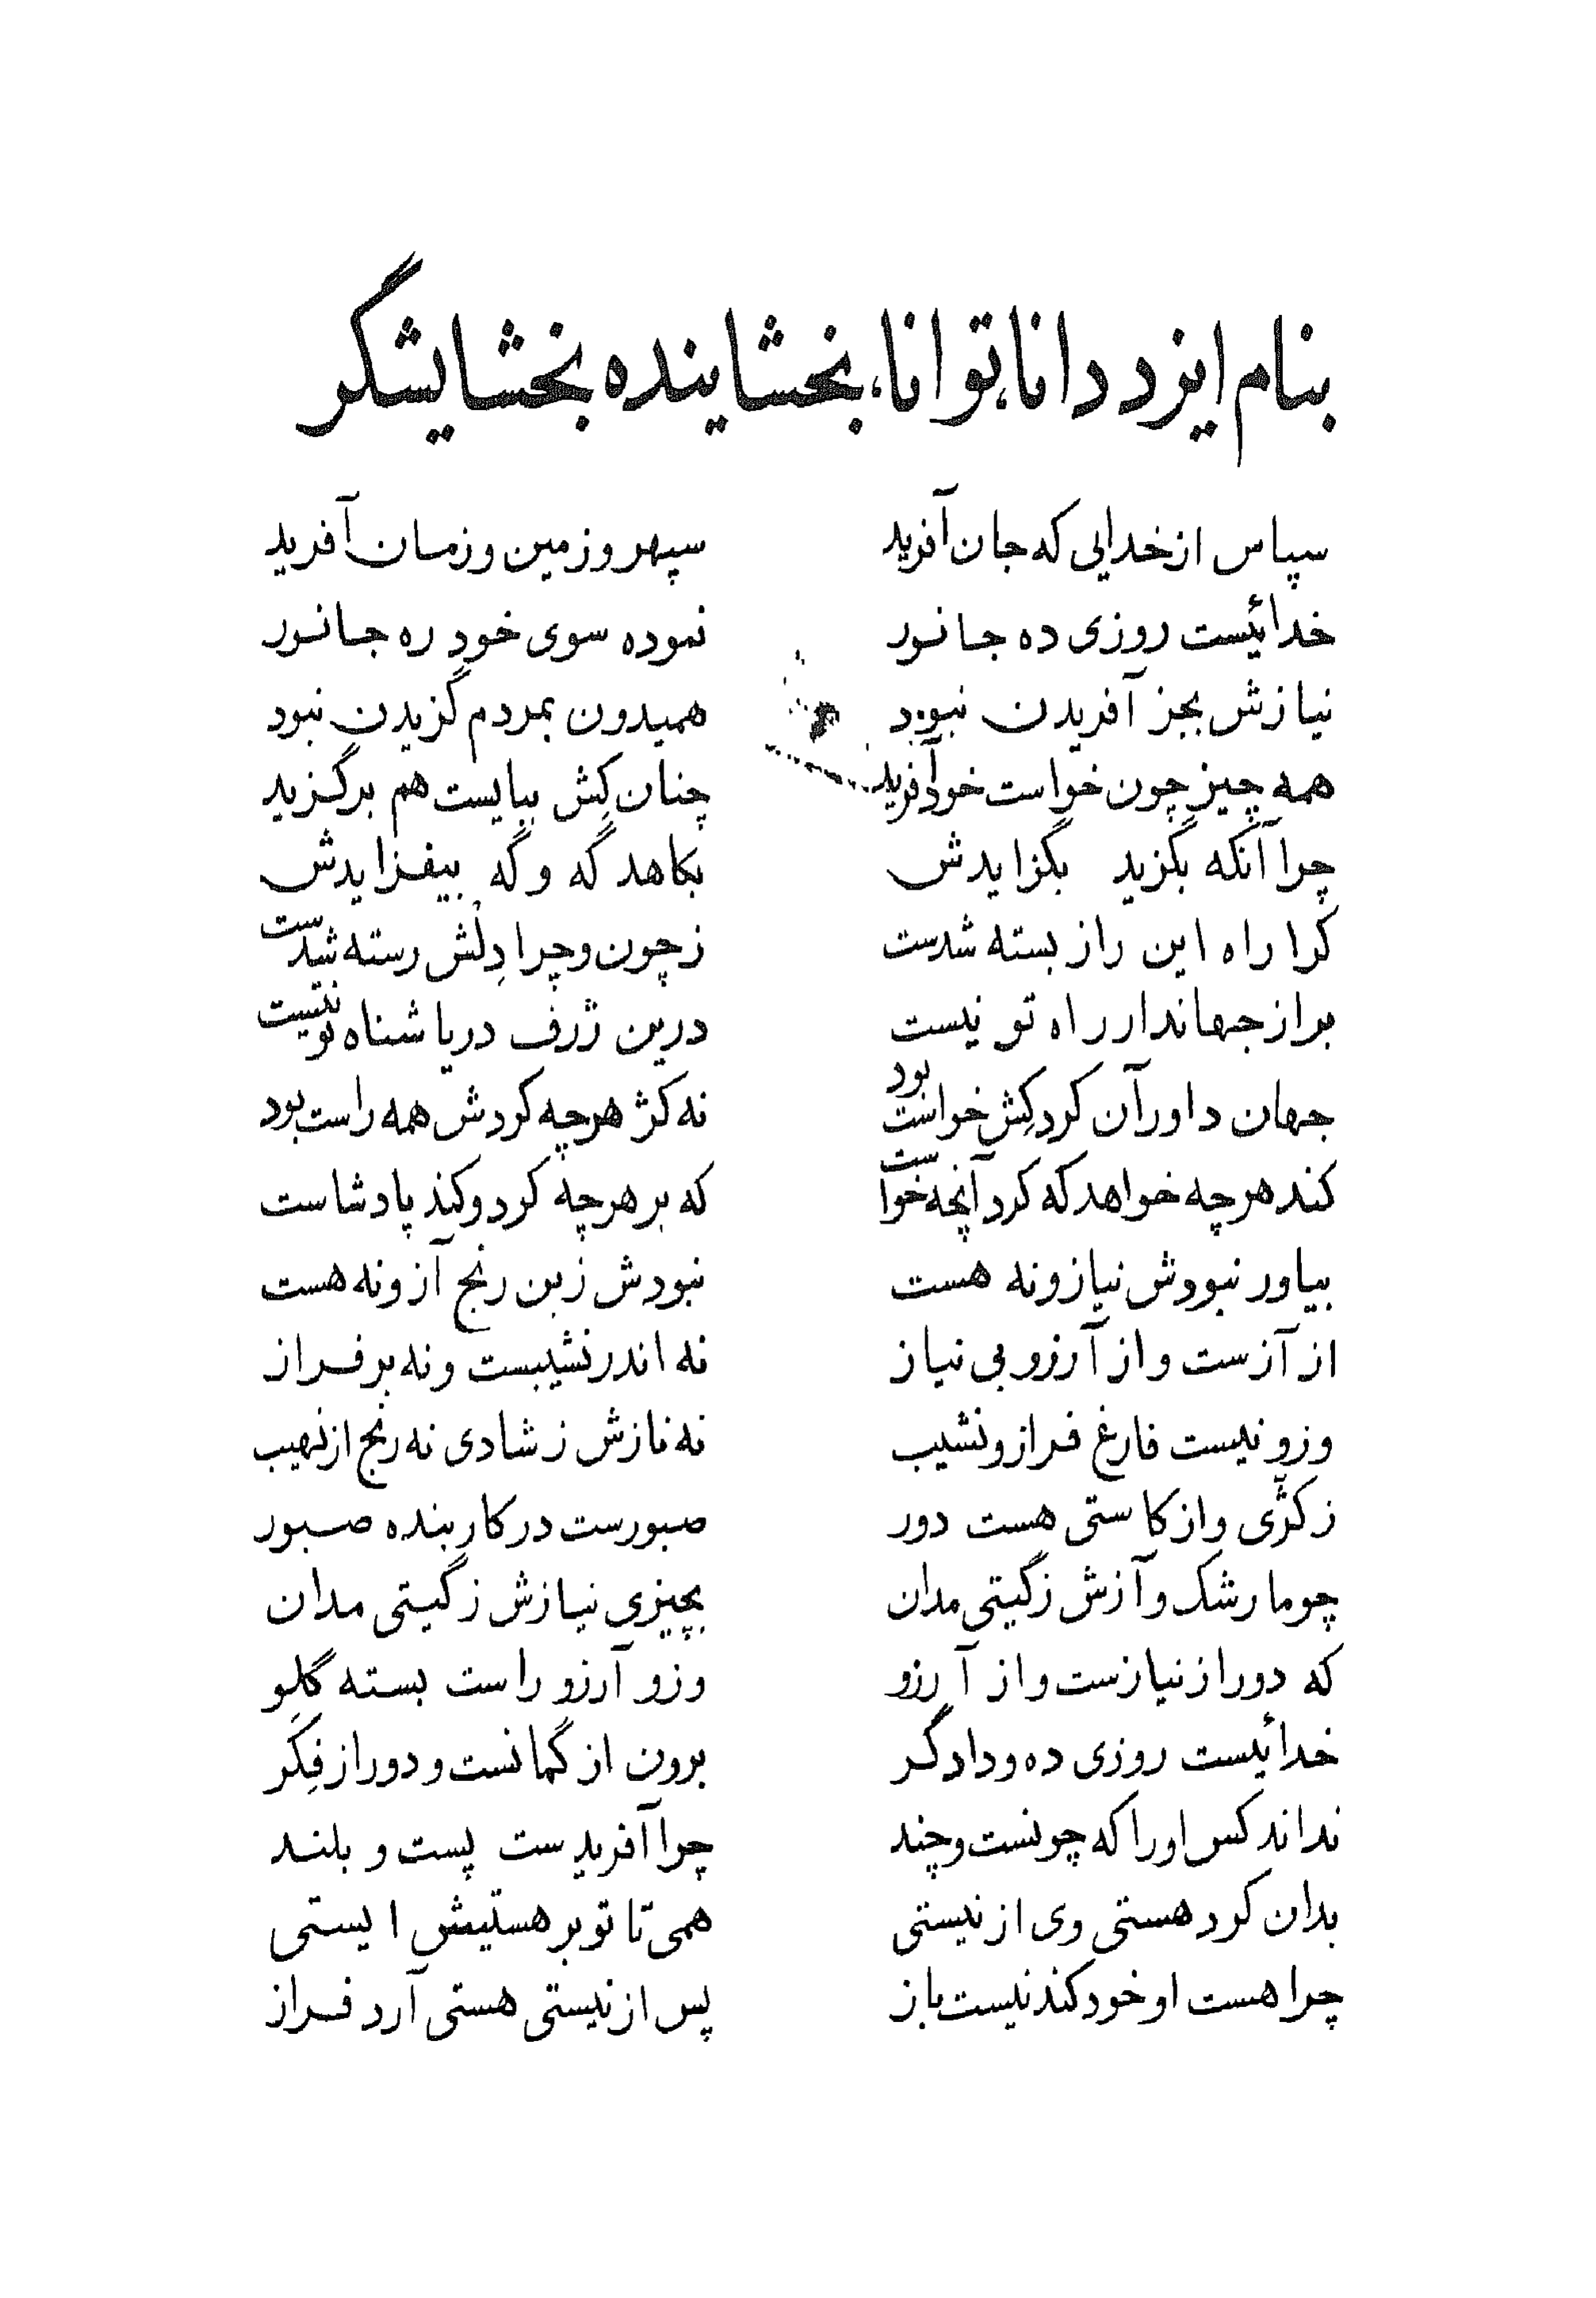 بنام ایزد دانا، توانا، بخشاینده بخشایشگر
سپاس از خدایی که جان آفرید سپهر و زمین و زمان آفرید
خدائیست روزی ده جانور نموده سوی خود ره جانور
نیازش بجز آفریدن نبود همیدون بمردم گزیدن نبود
همه چیز چون خواست خود آفرید چنان کِش ببایست هم برگزید
چرا آنکه بگزید بگزایدش بکاهد گه و گه بیفزایدش
کرا راه این راز بسته شدست ز چون و چرا دِلش رسته شدست
براز جهاندار راه تو نیست درین ژرف دریا شناه تو نیست
جهان داور آن کرد کِش خواست بود نه کژ هرچه کردش همه راست بود
کند هرچه خواهد که کرد آنچه خواست که بر هرچه کرد و کند پادشاست
بیاور نبودش نیاز و نه هست نبودش زبن رنج آز و نه هست
از آزست و از آرزو بی نیاز نه اندر نشیبست و نه بر فراز
وزو نیست فارغ فراز و نشیب نه نازش ز شادی نه رنج از نهیب
ز کژّی و از کاستی هست دور صبورست در کار بنده صبور
چو ما رشک و آزش ز گیتی مدان بچیزی نیازش ز گیتی مدان
که دور از نیازست و از آرزو وزو آرزو راست بسته گلِو
خدائیست روزی ده و دادگر برون از گمانست و دور از فِکَر
نداند کس او را که چونست و چند چرا آفریدست پست و بلند
بدان کرد هستی وی از نیستی همی تا تو بر هستیش ایستی
چرا هست او خود کند نیست باز پس از نیستی هستی آرد فراز